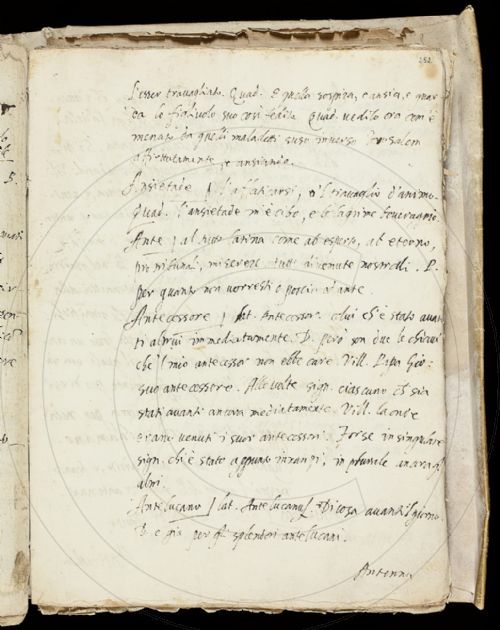 252.
L'esser travagliato. Quad. E quella sospira, e ansia, e guar
da lo figliuolo suo così fedito Quad. vedilo ora com'è
menato da quelli maladetti suso inverso Jerusalem
affrettatamente, e ansiando.
Ansietade / l'affaticarsi, o 'l travaglio d'animo.
Quad. l'ansietade m'è cibo, e le lagrime beveraggio
Ante / al modo latino come ab esperto, ab eterno,
pro tribunal, miserere tutti divenute nostrali. P.
per quanto non vorresti o poscia od ante.
Antecessore / lat. Antecessor. colui ch'è stato avan
ti altrui immediatamente. D. però son due le chiavi
che 'l mio antecessor non ebbe care. Vill. Papa Gio:
suo antecessore. Alle volte sign. ciascuno che sia
stato avanti ancora mediatamente Vill. la onde
erano venuti i suoi antecessori. Forse in singulare
sign. chi è stato appunto innanzi, in plurale ancora gl'
altri.
Antelucano / lat. Antelucanus. Di cosa avanti 'l giorno.
D. e già per gli splendori antelucani.
Antenna